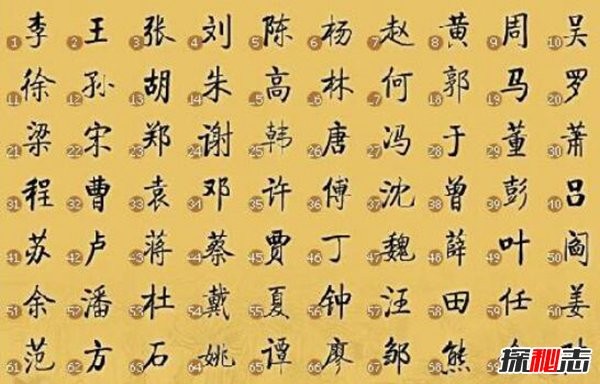 1 李 2 王 3 张 4 刘 5 陈 6 杨 7 赵 8 黄 9 周 10 吴
11 徐 12 孙 13 胡 14 朱 15 高 16 林 17 何 18 郭 19 马 20 罗
21 梁 22 宋 23 郑 24 谢 25 韩 26 唐 27 冯 28 于 29 董 30 萧
31 程 32 曹 33 袁 34 邓 35 许 36 傅 37 沈 38 曾 39 彭 40 吕
41 苏 42 卢 43 蒋 44 蔡 45 贾 46 丁 47 魏 48 薛 49 叶 50 阎
51 余 52 潘 53 杜 54 戴 55 夏 56 钟 57 汪 58 田 59 任 60 姜
61 范 62 方 63 石 64 姚 65 谭 66 廖 67 邹 68 熊
探秘志